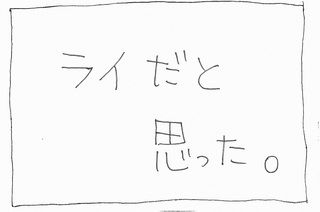 ライだと
思った。